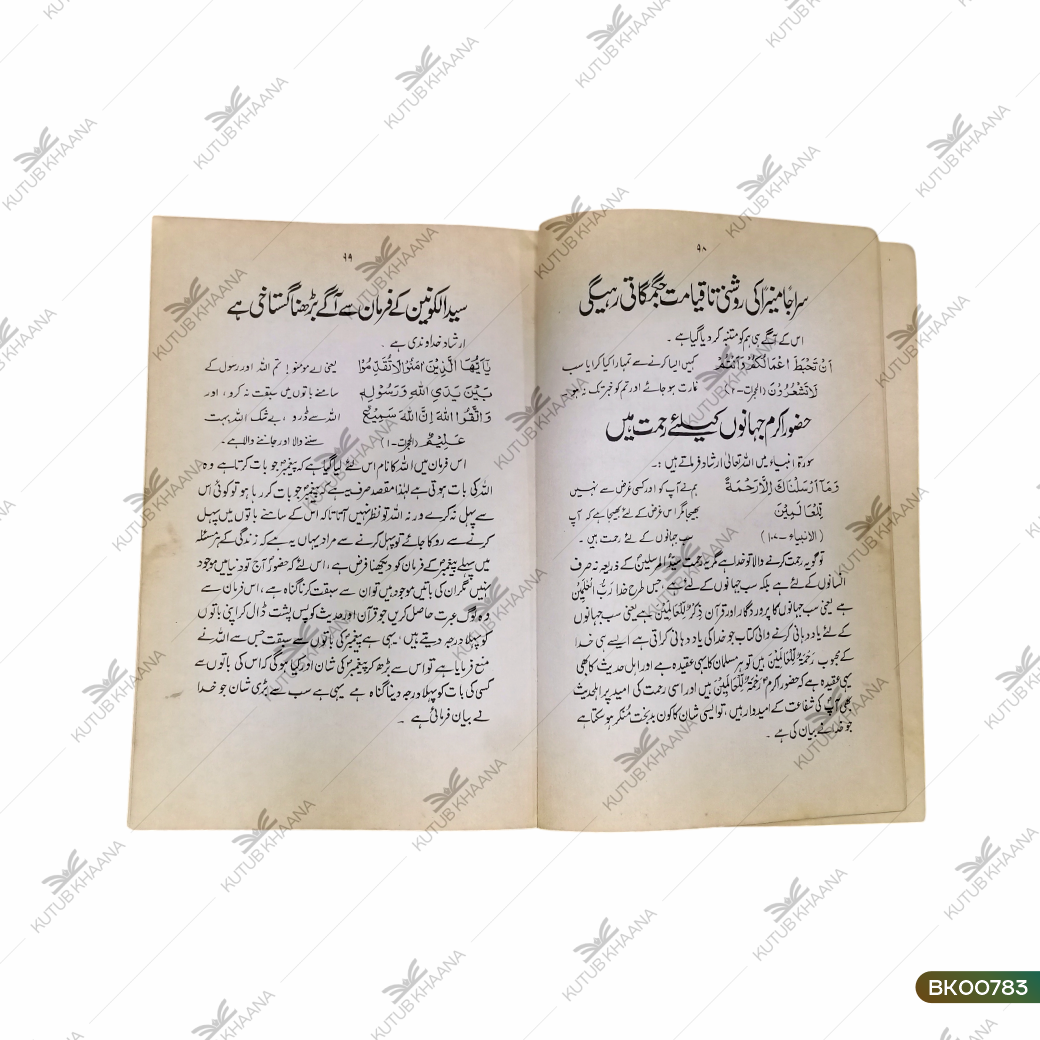 ۹۸
سراجا منیرا کی روشنی تا قیامت جگمگاتی رہیگی
اس کے آگے ہی ہم کو متنبہ کر دیا گیا ہے ۔
اَنْ تَحْبَطَ اَعْمَالُكُمْ وَاَنْتُمْ کہیں ایسا کرنے سے تمہارا کیا کرایا سب
لَا تَشْعُرُوْنَ (الحجرٰت-۲) غارت ہو جائے اور تم کو خبر تک نہ ہو
حضور اکرم جہانوں کیلئے رحمت ہیں
سورۃ انبیاء میں اللہ تعالیٰ ارشاد فرماتے ہیں :۔
وَمَا اَرْسَلْنَاكَ اِلَّا رَحْمَةً ہم نے آپ کو اور کسی غرض سے نہیں
لِّلْعَالَمِيْنَ بھیجا مگر اس غرض کے لئے بھیجا ہے کہ آپ
(الانبیاء -۱۰۷) سب جہانوں کے لئے رحمت ہیں ۔
تو گویہ رحمت کرنے والا تو خدا ہے مگر یہ رحمت سیدُ المرسلینؐ کے ذریعہ نہ صرف
انسانوں کے لئے ہے بلکہ سب جہانوں کے لئے ہے، جس طرح خدا رَبُّ الْعٰلَمِیْنَ
ہے یعنی سب جہانوں کا پروردگار اور قرآن ذِکْرٌ لِّلْعَالَمِیْنَ ہے یعنی سب جہانوں
کے لئے یاد دہانی کرنے والی کتاب جو خدا کی یاد دہانی کراتی ہے ایسے ہی خدا
کے محبوب رَحْمَۃٌ لِّلْعَالَمِیْنَ ہیں تو ہر مسلمان کا یہی عقیدہ ہے اور اہل حدیث کا بھی
یہی عقیدہ ہے کہ حضور اکرمؐ رَحْمَۃٌ لِّلْعَالَمِیْنَ ہیں اور اسی رحمت کی امید پر اہلحدیث
بھی آپؐ کی شفاعت کے امیدوار ہیں، تو ایسی شان کا کون بدبخت مُنکر ہو سکتا ہے
جو خدا نے بیان کی ہے ۔
۹۹
سید الکونین کے فرمان سے آگے بڑھنا گستاخی ہے
ارشاد خداوندی ہے ۔
يٰاَيُّهَا الَّذِيْنَ اٰمَنُوْا لَا تُقَدِّمُوْا یعنی اے مومنو! تم اللہ اور رسول کے
بَيْنَ يَدَيِ اللهِ وَرَسُوْلِهٖ سامنے باتوں میں سبقت نہ کرو، اور
وَاتَّقُوا اللهَ اِنَّ اللهَ سَمِيْعٌ اللہ سے ڈرو، بے شک اللہ بہت
عَلِيْمٌ (الحجرٰت-۱) سننے والا اور جاننے والا ہے۔
اس فرمان میں اللہ کا نام اس لئے لیا گیا ہے کہ پیغمبرؐ جو بات کرتا ہے وہ
اللہ کی بات ہوتی ہے لہٰذا مقصد صرف یہ ہے کہ پیغمبرؐ جو بات کر رہا ہو تو کوئی اس
سے پہل نہ کرے ورنہ اللہ تو نظر نہیں آتا تاکہ اس کے سامنے باتوں میں پہل
کرنے سے روکا جائے تو پہل کرنے سے مراد یہاں یہ ہے کہ زندگی کے ہر مسئلہ
میں پہلے پیغمبرؐ کے فرمان کو دیکھنا فرض ہے، اس لئے کہ حضورؐ آج تو دنیا میں موجود
نہیں مگر ان کی باتیں موجود ہیں تو ان سے سبقت کرنا گناہ ہے، اس فرمان سے
وہ لوگ عبرت حاصل کریں جو قرآن اور حدیث کو پس پشت ڈال کر اپنی باتوں
کو پہلا درجہ دیتے ہیں، یہی ہے پیغمبرؐ کی باتوں سے سبقت جس سے اللہ نے
منع فرمایا ہے تو اس سے بڑھ کر پیغمبرؐ کی شان اور کیا ہوگی کہ اس کی باتوں سے
کسی کی بات کو پہلا درجہ دینا گناہ ہے یہی ہے سب سے بڑی شان جو خدا
نے بیان فرمائی ہے ۔
KUTUB KHAANA
BK00783